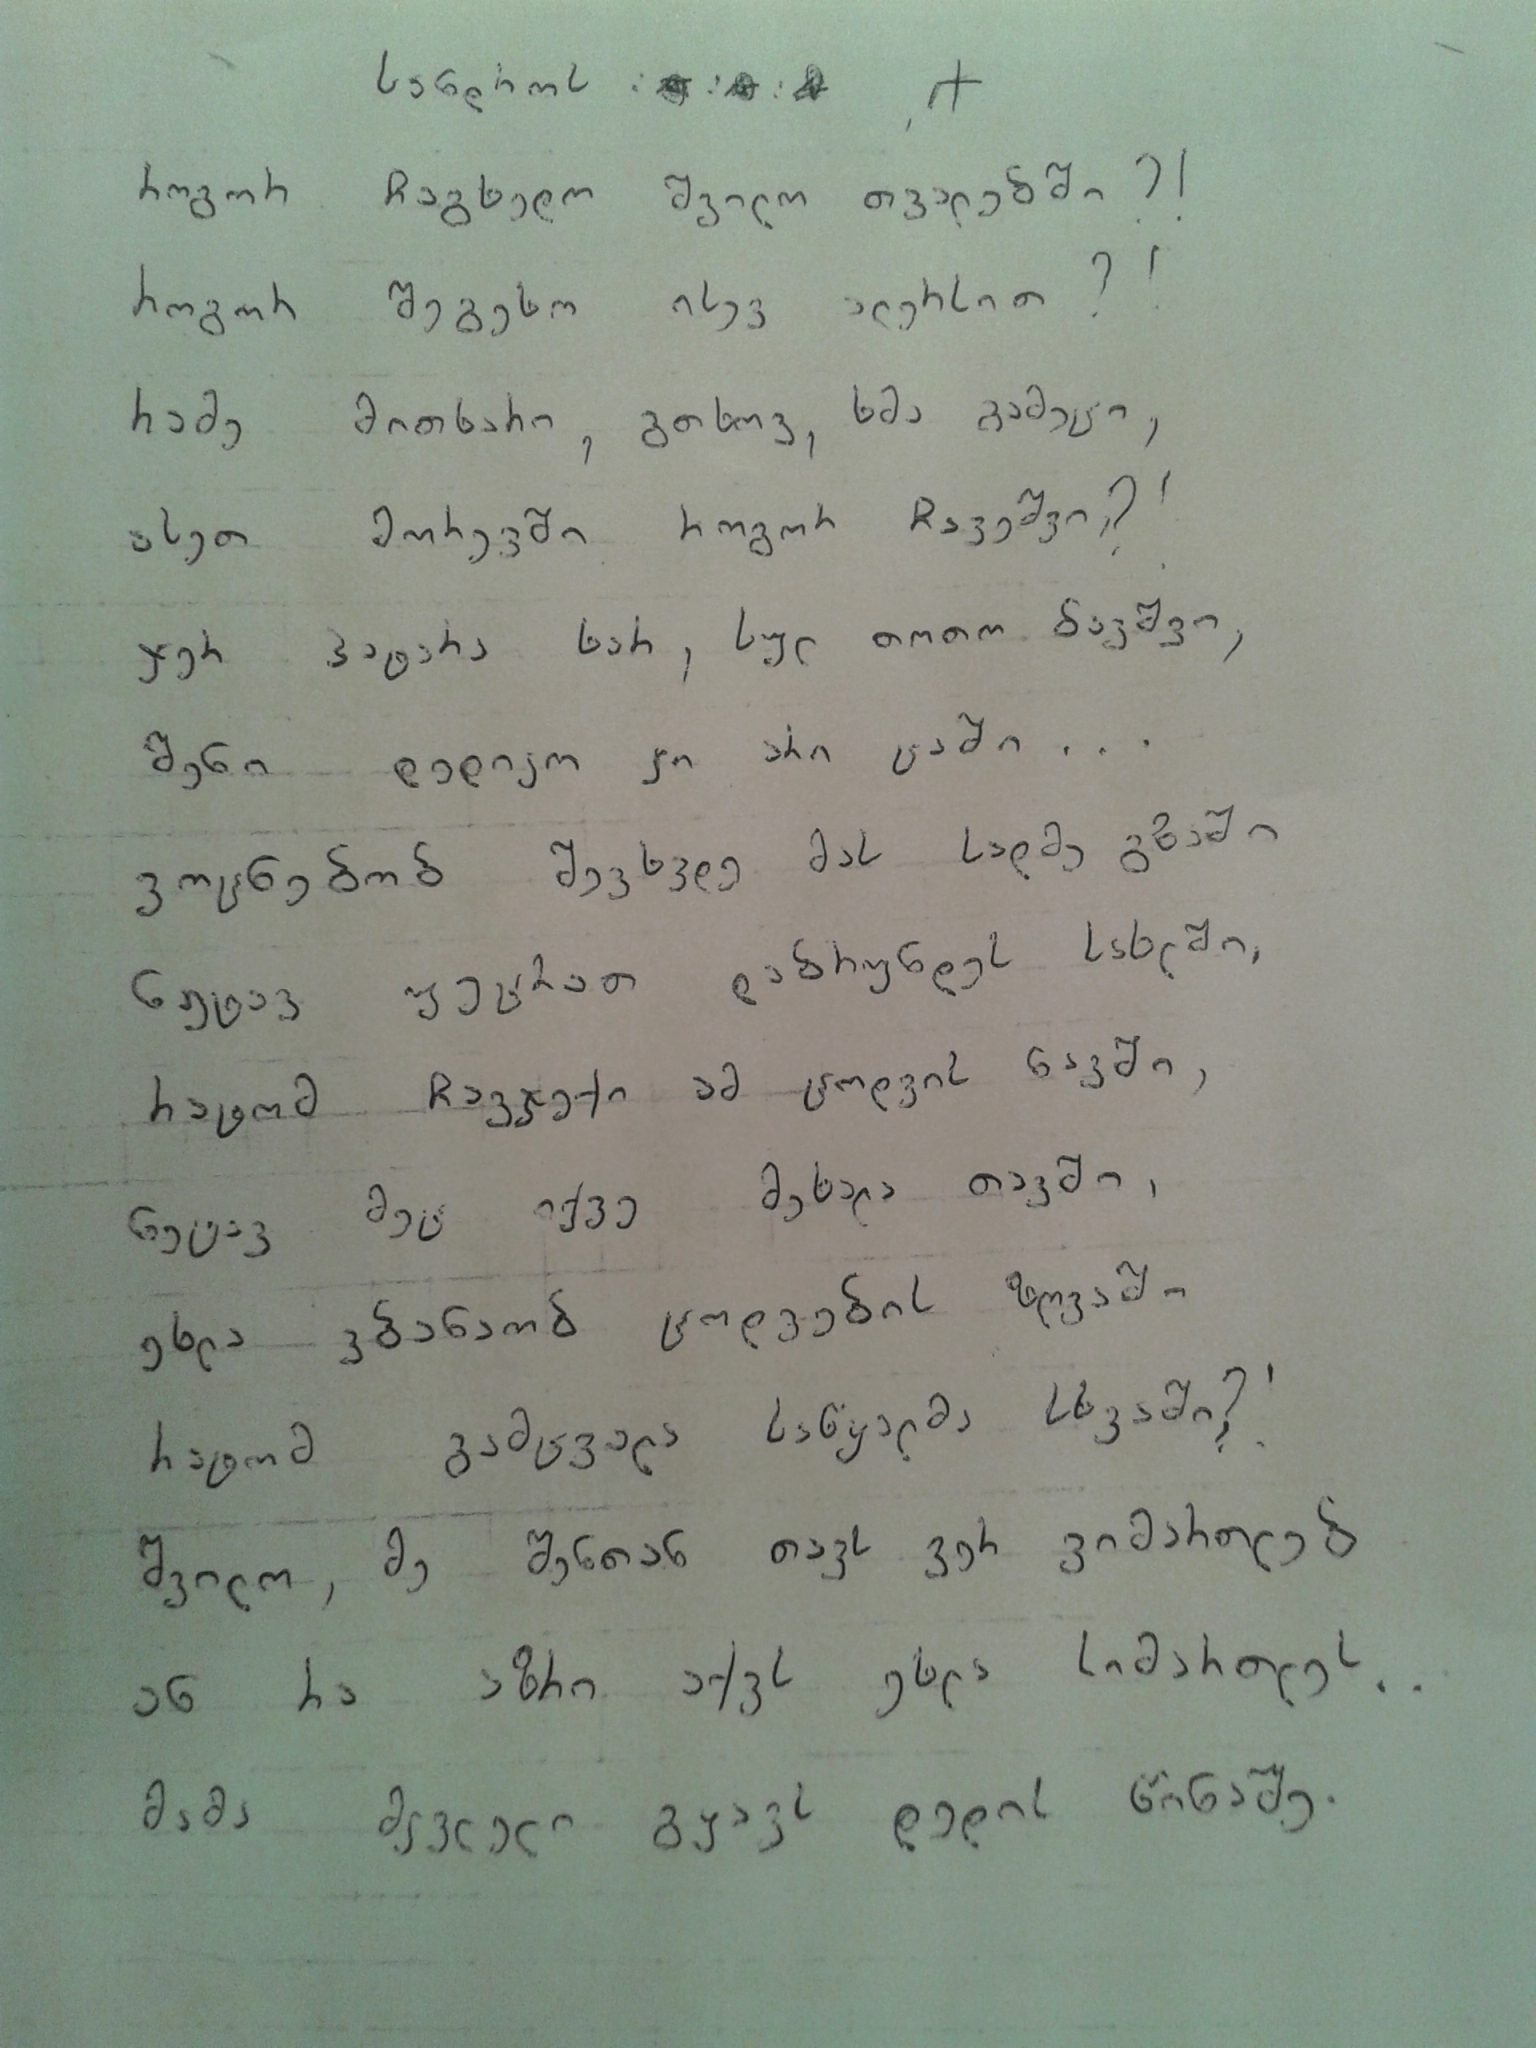 სანდროს
როგორ ჩაგხედო შვილო თვალებში?!
როგორ შეგეხო ისევ ალერსით?!
რამე მითხარი, გთხოვ, ხმა გამეცი,
ასეთ მორევში როგორ ჩავეშვი?!
ჯერ პატარა ხარ, სულ თოთო ბავშვი,
შენი დედიკო კი არი ცაში...
ვოცნებობ შევხვდე მას სადმე გზაში
ნეტავ უეცრათ დაბრუნდეს სახლში,
რატომ ჩავჯექი ამ ცოდვის ნავში,
ნეტავ მეც იქვე მეხალა თავში,
ეხლა ვბანაობ ცოდვების ზღვაში
რატომ გამცვალა საწყალმა სხვაში?!
შვილო, მე შენთან თავს ვერ ვიმართლებ
ან რა აზრი აქვს ეხლა სიმართლეს..
მამა მკვლელი გყავს დედის წინაშე.